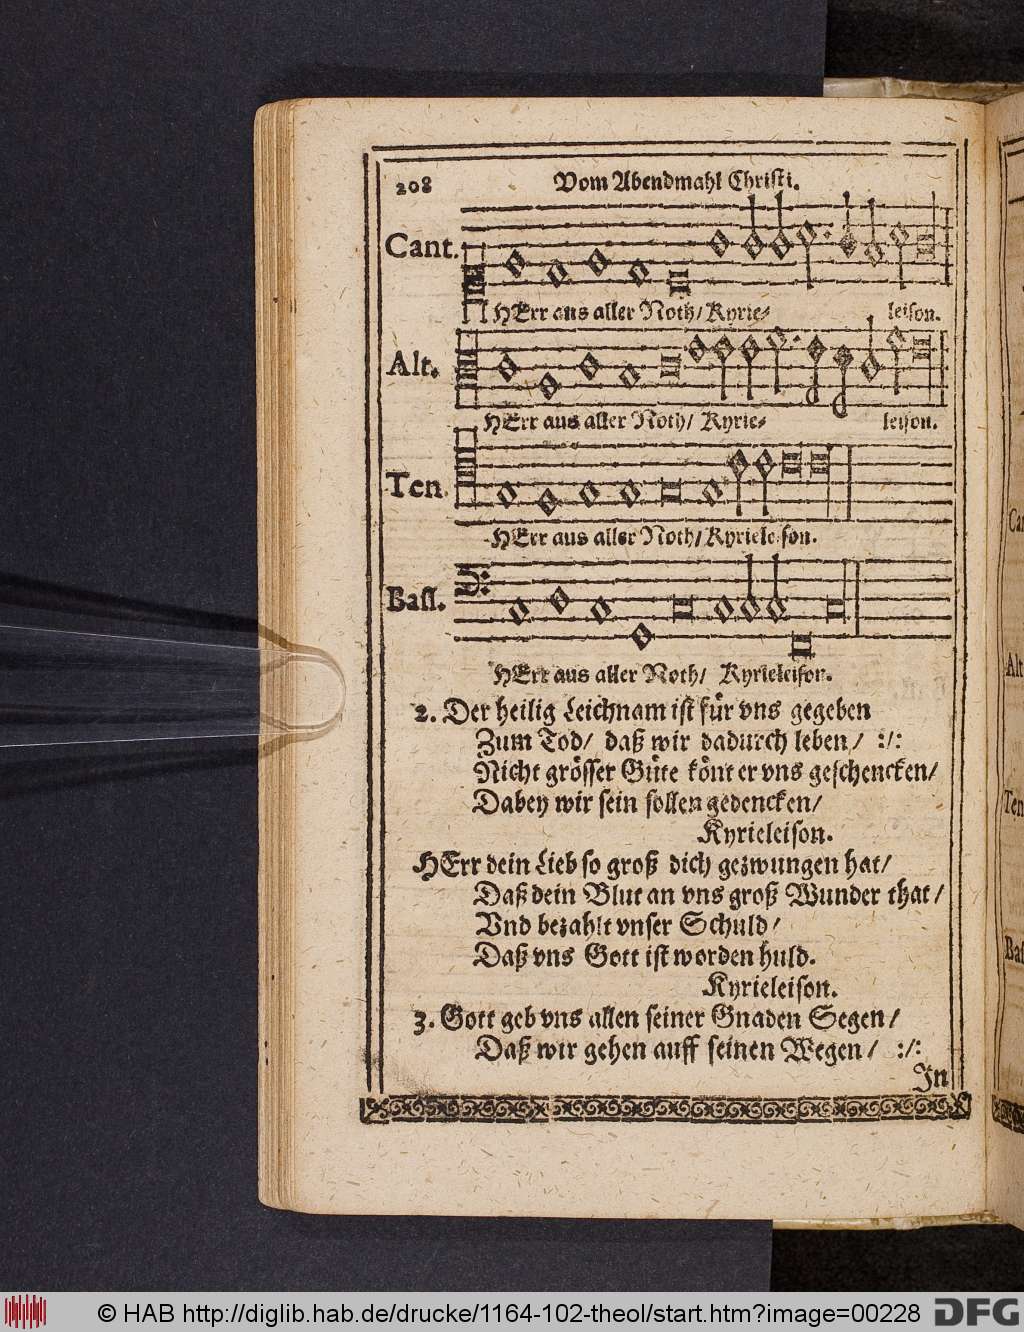 208 Vom Abendmahl Christi.
Cant.
HErr aus aller Noth/ Kyrie- leison.
Alt.
HErr aus aller Noth/ Kyrie- leison.
Ten
HErr aus aller Noth/ Kyrieleison.
Bass.
HErr aus aller Noth/ Kyrieleison.
2. Der heilig Leichnam ist für vns gegeben
Zum Tod/ daß wir dadurch leben/ :/:
Nicht grösser Güte könt er vns geschencken/
Dabey wir sein sollen gedencken/
Kyrieleison.
HErr dein Lieb so groß dich gezwungen hat/
Daß dein Blut an vns groß Wunder that/
Vnd bezahlt vnser Schuld/
Daß vns Gott ist worden huld.
Kyrieleison.
3. Gott geb vns allen seiner Gnaden Segen/
Daß wir gehen auff seinen Wegen/ :/:
In
Alt
Ten
© HAB http://diglib.hab.de/drucke/1164-102-theol/start.htm?image=00228 DFG